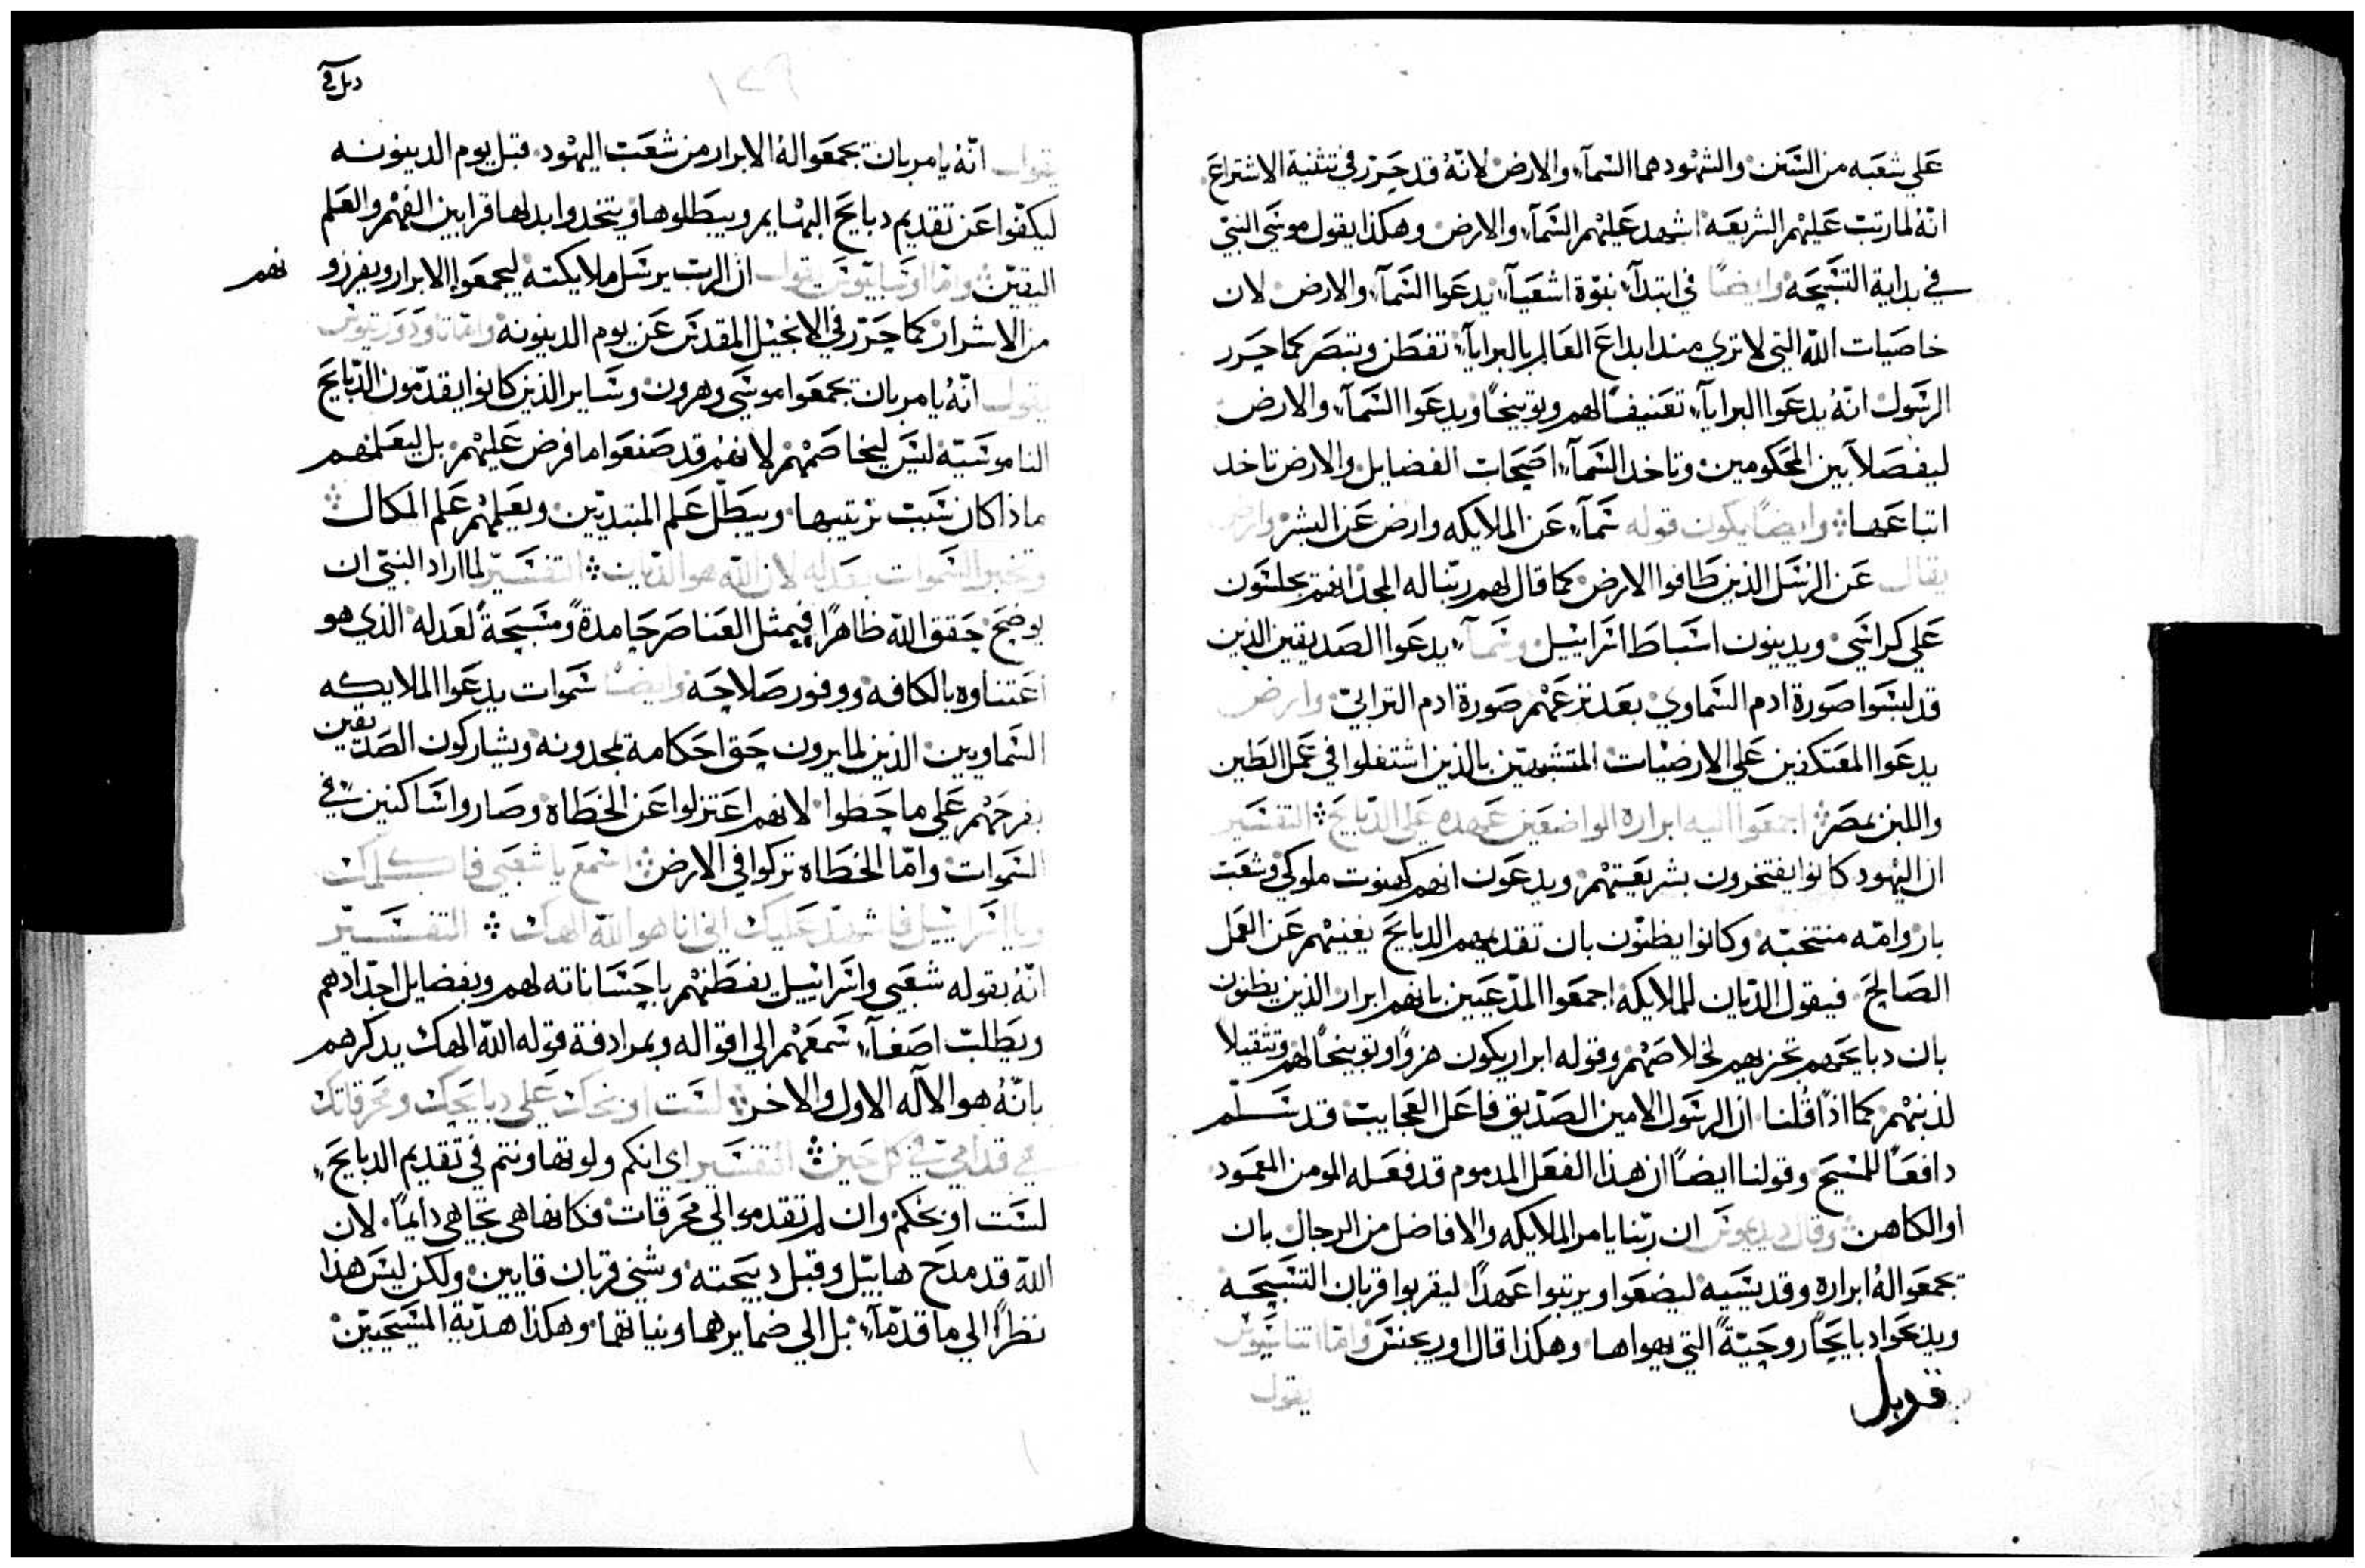 علي شعبه من السنن والشهود هما السمآء والارض لانه قد حرر في تثنية الاشتراع
انه لما رتب عليهم الشريعه اشهد عليهم السمآء والارض وهكذا يقول موسي النبي
في بداية التسبحه وايضًا في ابتدآء نبوة اشعيآء يدعوا السمآء والارض لان
خاصيات الله التي لا تري مند ابداع العالم بالبرايآء تفطن وتبصر كما حرر
الرسول انه يدعوا البرايآء تعنيفًا لهم وتوبيخًا ويدعوا السمآء والارض
ليفصلا بين المحكومين وتاخد السمآء اصحاب الفضايل والارض تاخد
اتباعها وايضًا يكون قوله سمآء عن الملايكه وارض عن البشر وارض
يقال عن الرسل الذين طافوا الارض كما قال لهم ربنا له المجد انهم يجلسون
علي كراسي ويدينون اسباط اسراييل وسمآء يدعوا الصديقين الذين
قد لبسوا صورة ادم السماوي بعد نزعهم صورة ادم الترابي وارض
يدعوا المعتكفين علي الارضيات المتشبهين بالذين اشتغلوا في عمل الطين
واللبن بمصر اجمعوا اليه ابراره الواضعين عهده علي الدبايح التفسير
ان اليهود كانوا يفتخرون بشريعتهم ويدعون انهم كهنوت ملوكي وشعب
بار وامه منتخبه وكانوا يظنون بان تقديمهم الدبايح يغنيهم عن العمل
الصالح فيقول الديان للملايكه اجمعوا المدعيين بانهم ابرار الذين يظنون
بان دبايحهم تجزيهم لخلاصهم وقوله ابرار يكون هزوًا وتوبيخًا لهم وتثقيلاً
لذنبهم كما اذا قلنا ان الرسول الامين الصديق فاعل العجايب قد سلم
دافعًا للمسيح وقولنا ايضًا ان هذا الفعل المدموم قد فعله المومن المعمود
او الكاهن وقال ديديموس ان ربنا يامر الملايكه والافاضل من الرجال بان
يجمعوا له ابراره وقديسيه ليضعوا ويرتبوا عهدًا ليقربوا قربان التسبحه
ويدبحوا دبايحًا روحيةً التي يهواها وهكذا قال اوريجنس واما اتناسيوس
قوبل
يقول
يقول انه يامر بان يجمعوا له الابرار من شعب اليهود قبل يوم الدينونه
ليكفوا عن تقديم دبايح البهايم ويبطلوها ويتخدوا بدلها قرابين الفهم والعلم
اليقين واما اوسابيوس يقول ان الرب يرسل ملايكته ليجمعوا الابرار ويفرزو نهم
من الاشرار كما حرر في الانجيل المقدس عن يوم الدينونه واما تاودوريتوس
يقول انه يامر بان يجمعوا موسي وهرون وساير الذين كانوا يقدمون الدبايح
الناموسيه ليس ليخاصمهم لانهم قد صنعوا ما فرض عليهم بل ليعلمهم
ماذا كان سبب ترتيبها ويبطل علم المبتديين ويعلمهم علم الكمال
وتخبر السموات بعدله لان الله هو الديان التفسير لما اراد النبي ان
يوضح حقق الله ظاهرًا فيمثل العناصر حامدةً ومسبحةً لعدله الذي هو
اعتناوه بالكافه ووفور صلاحه وايضًا سموات يدعوا الملايكه
السماويين الذين لما يرون حق احكامه يمجدونه ويشاركون الصديقين
بفرحهم علي ما حظوا لانهم اعتزلوا عن الخطاه وصاروا ساكنين في
السموات واما الخطاه تركوا في الارض اسمع يا شعبي فاكلمك
ويا اسراييل فاشهد عليك اني انا هو الله الهك التفسير
انه بقوله شعبي واسراييل يفطنهم باحساناته لهم وبفضايل اجدادهم
ويطلب اصغآء سمعهم الي اقواله وبمرادفة قوله الله الهك يدكرهم
بانه هو الاله الاول والاخر لست اوبخك علي دبايحك ومحرقاتك
هي قدامي في كل حين التفسير اي انكم ولو تهاونتم في تقديم الدبايح
لست اوبخكم وان لم تقدموا لي محرقات فكانها هي تجاهي دايمًا لان
الله قد مدح هابيل وقبل دبيحته وشني قربان قايين ولكن ليس هذا
نظرًا الي ما قدمآء بل الي ضمايرهما ونياتهما وهكذا هدية المسيحيين